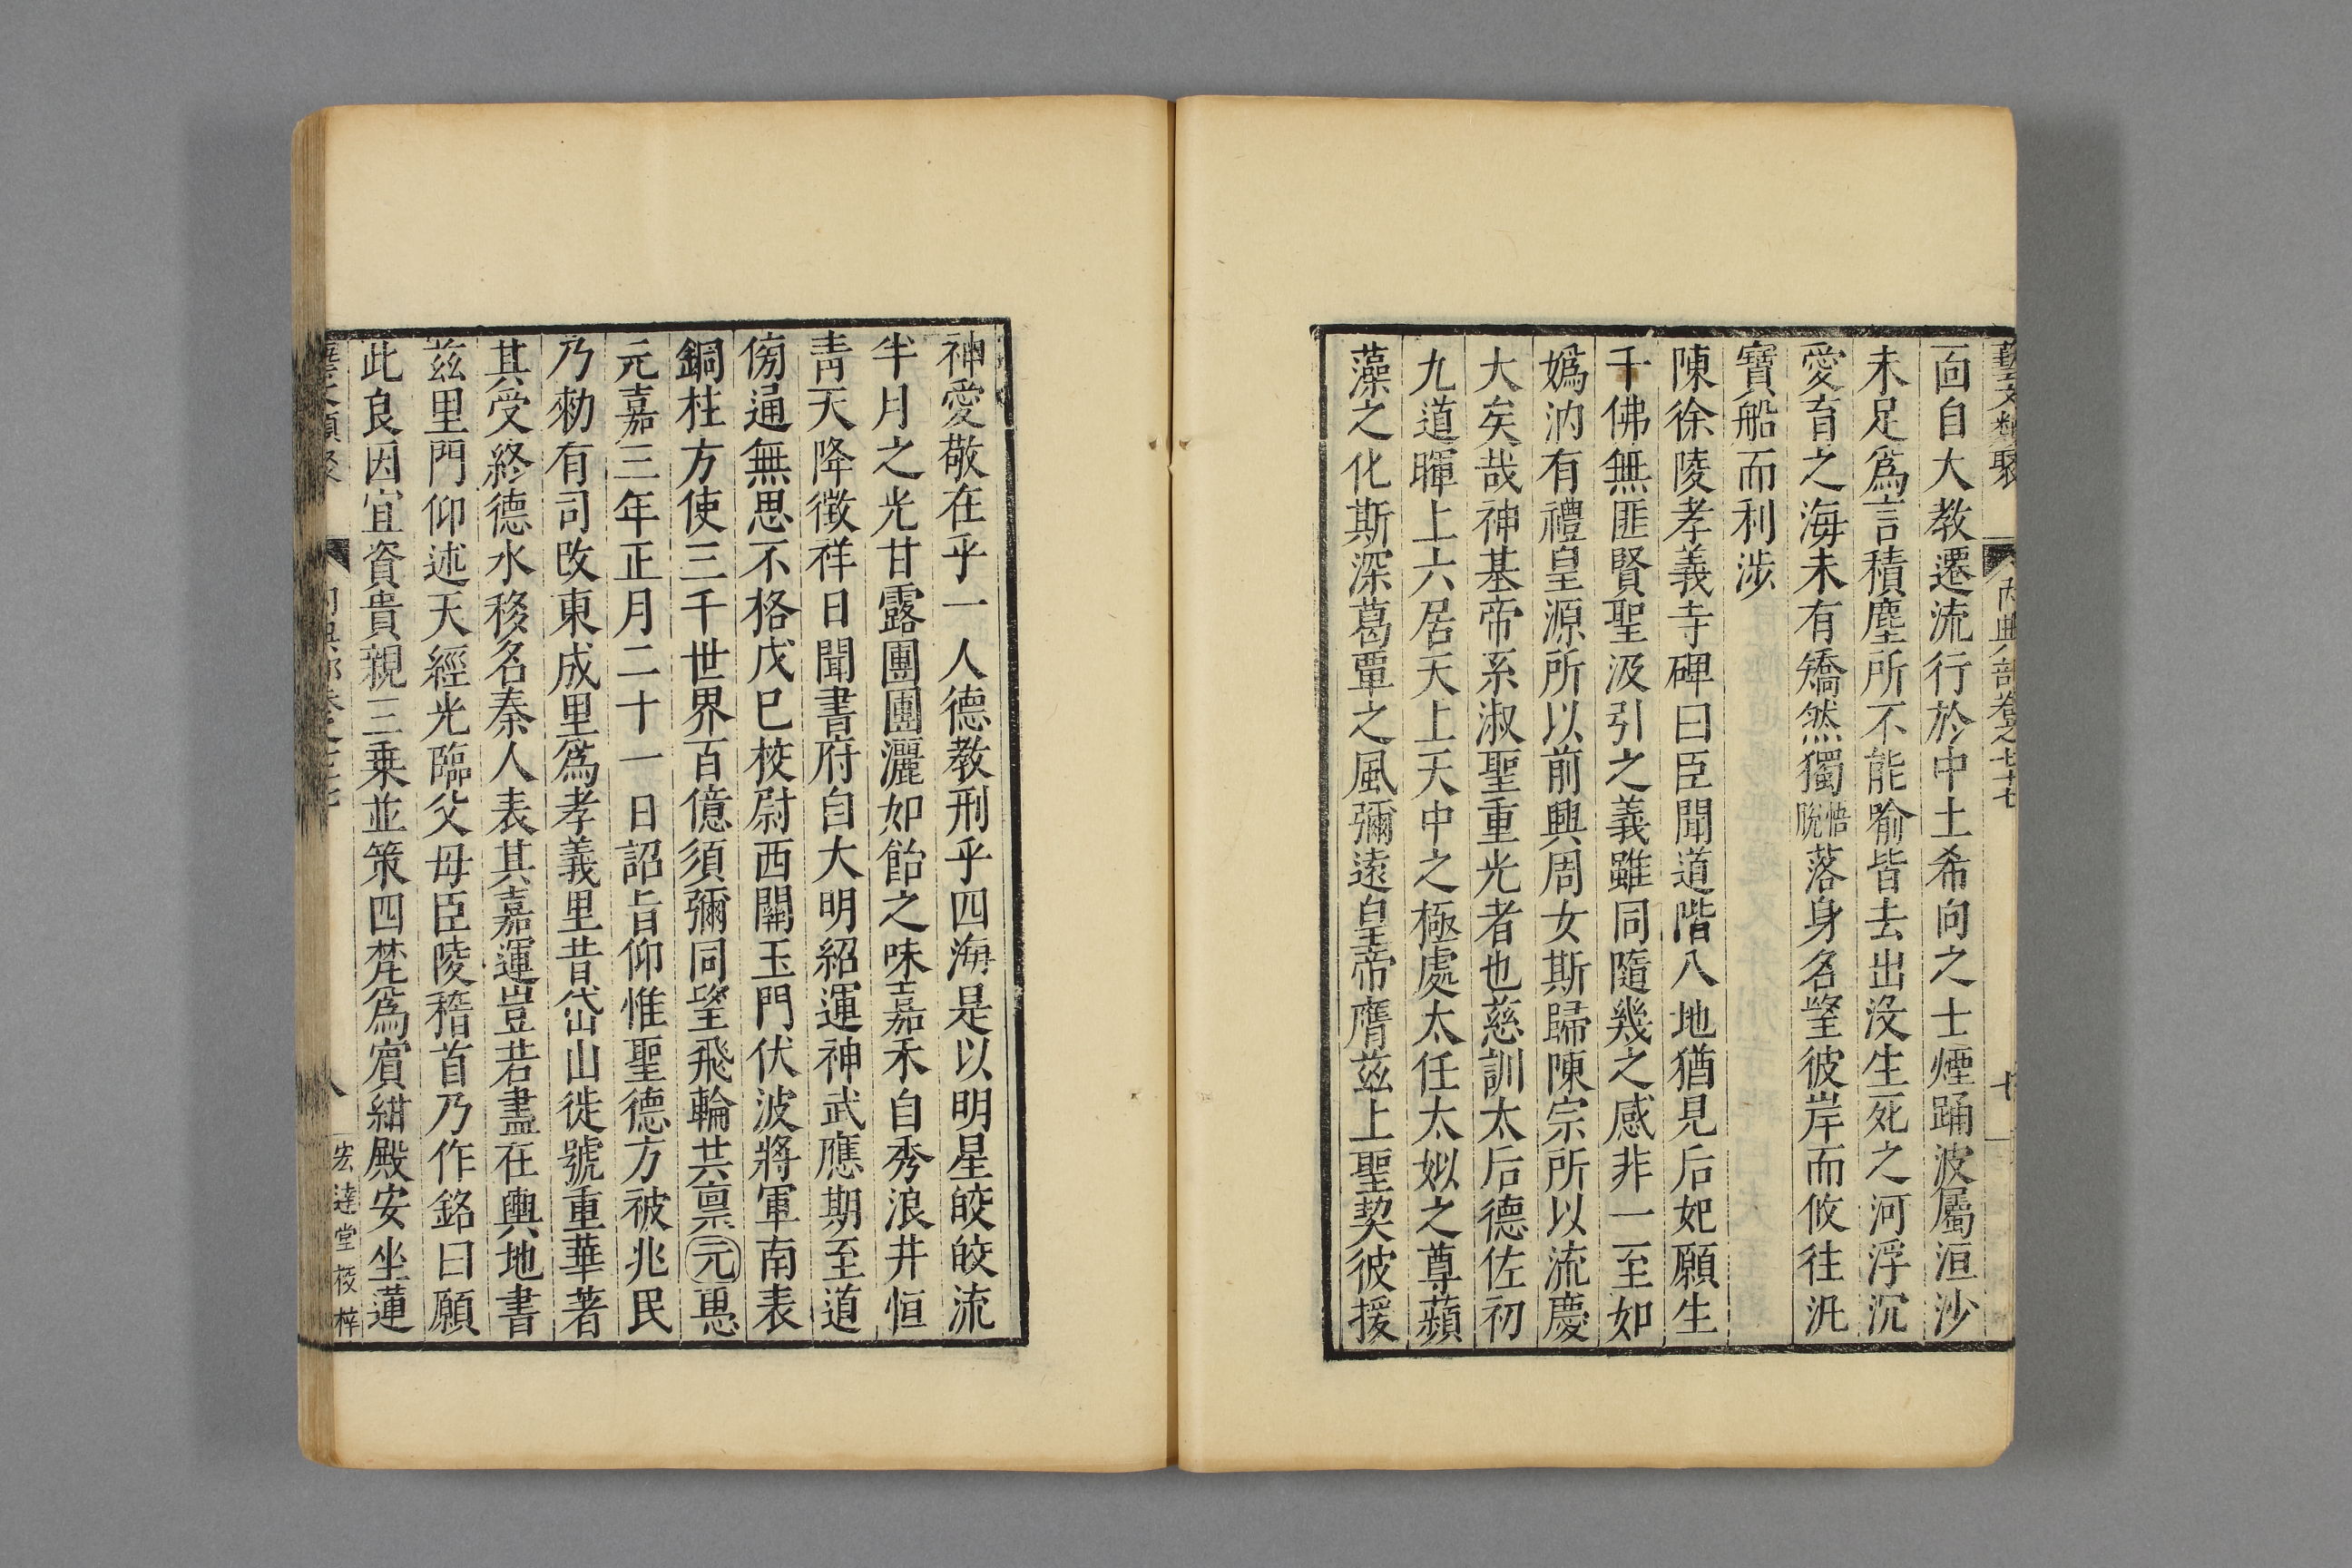 藝文類聚 內典部卷之七十七
靣自大教遷流行於中土希向之士煙踊波屬洹沙
未足爲言積塵所不能喻皆去出沒生死之河浮沉
愛㐬之海未有矯然獨悟脫落身名望彼岸而攸往汎
寶船而利涉
陳徐陵孝義寺碑曰臣聞道階八地猶見后妃願生
千佛無匪賢聖汲引之義雖同隨幾之感非一至如
嬀汭有禮皇源所以前興周女斯歸陳宗所以流慶
大矣哉神基帝系淑聖重光者也慈訓太后德佐初
九道暉上六居天上天中之極處太任太姒之尊蘋
藻之化斯深葛覃之風彌遠皇帝膺兹上聖契彼援
神愛敬在乎一人德教刑乎四海是以明星皎皎流
半月之光甘露團團灑如飴之味嘉禾自秀浪井恒
靑天降徵祥日聞書府自大明紹運神武應期至道
傍通無思不格戊巳校尉西關玉門伏波將軍南表
銅柱方使三千世界百億須彌同望飛輪共禀元愚
元嘉三年正月二十一日詔旨仰惟聖德方被兆民
乃勑有司改東成里爲孝義里昔岱山徙號重華著
其受終德水移名秦人表其嘉運豈若盡在輿地書
兹里門仰述天經光臨父母臣陵稽首乃作銘曰願
此良因宜資貴親三乗並策四梵爲賓紺殿安坐蓮
宏達堂校梓